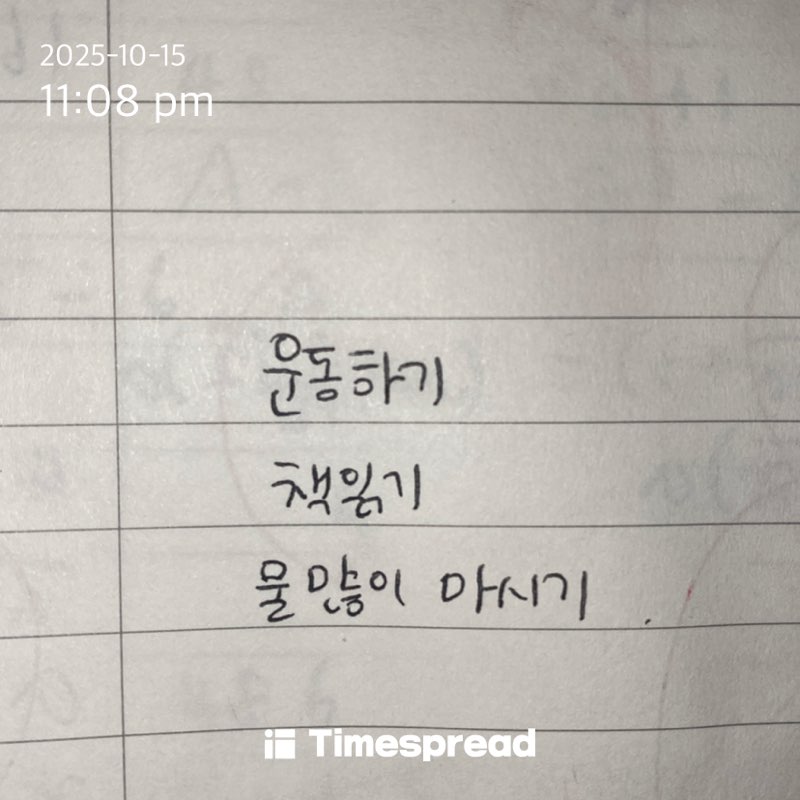 2025-10-15
11:08 pm
운동하기
책읽기
물 많이 마시기
Timespread